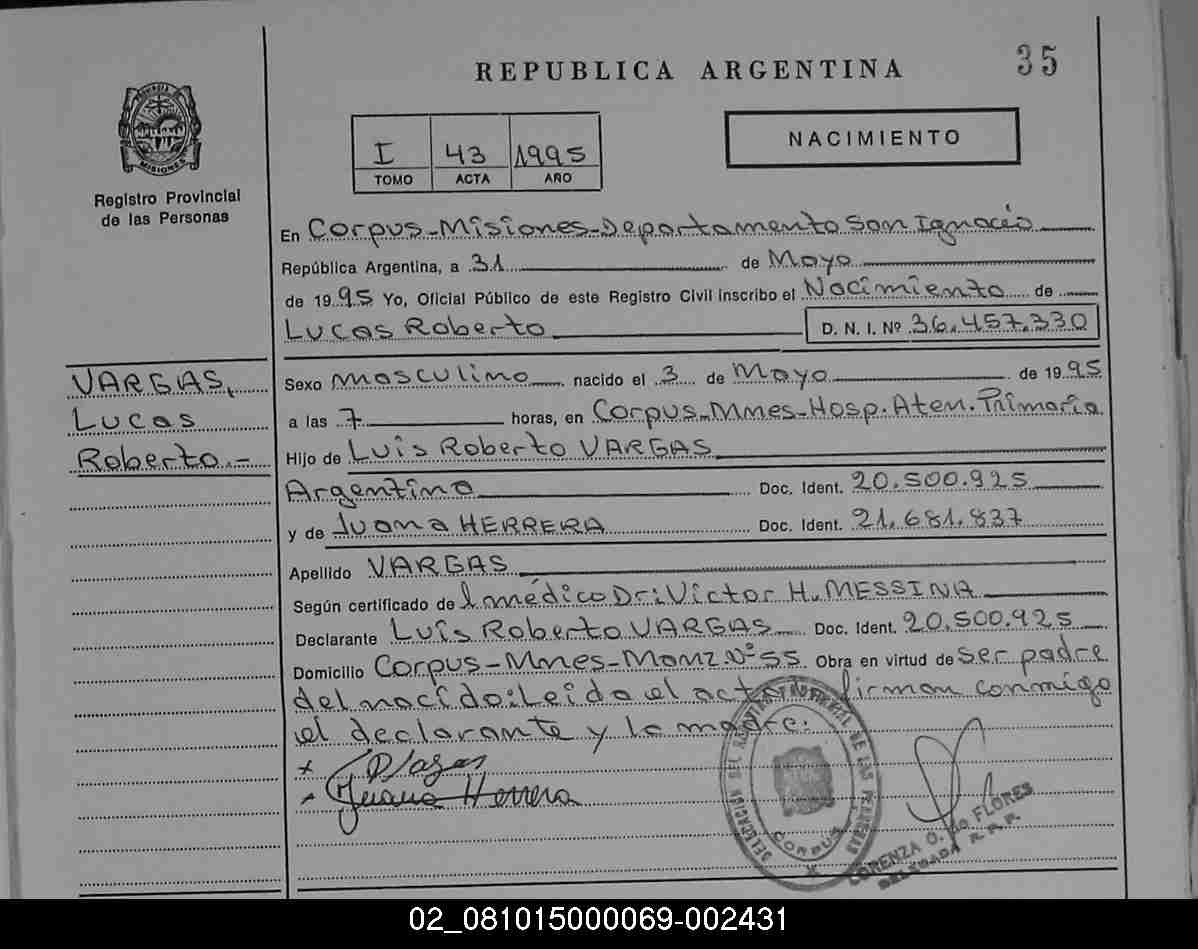 REPUBLICA ARGENTINA
35
PROVINCIA DE
MISIONES
Registro Provincial
de las Personas
I 43 1995
TOMO ACTA AÑO
NACIMIENTO
En Corpus-Misiones-Departamento San Ignacio
República Argentina, a 31 de Mayo
de 1995 Yo, Oficial Público de este Registro Civil inscribo el Nacimiento de
Lucas Roberto D. N. I. Nº 36.457.330
VARGAS,
Lucas
Roberto.-
Sexo masculino nacido el 3 de Mayo de 1995
a las 7 horas, en Corpus-Mnes-Hosp. Aten. Primaria
Hijo de Luis Roberto VARGAS
Argentino Doc. Ident. 20.500.925
y de Juana HERRERA Doc. Ident. 21.681.837
Apellido VARGAS
Según certificado del médico Dr: Victor H. MESSINA
Declarante Luis Roberto VARGAS Doc. Ident. 20.500.925
Domicilio Corpus-Mnes-Manz. Nº 55 Obra en virtud de ser padre
del nacido: Leida el acta firman conmigo
el declarante y la madre:
Juana Herrera
DELEGACION DEL REGISTRO PROVINCIAL DE LAS PERSONAS
CORPUS
LORENZA O. de FLORES
DELEGADA R. P. P.
02_081015000069-002431